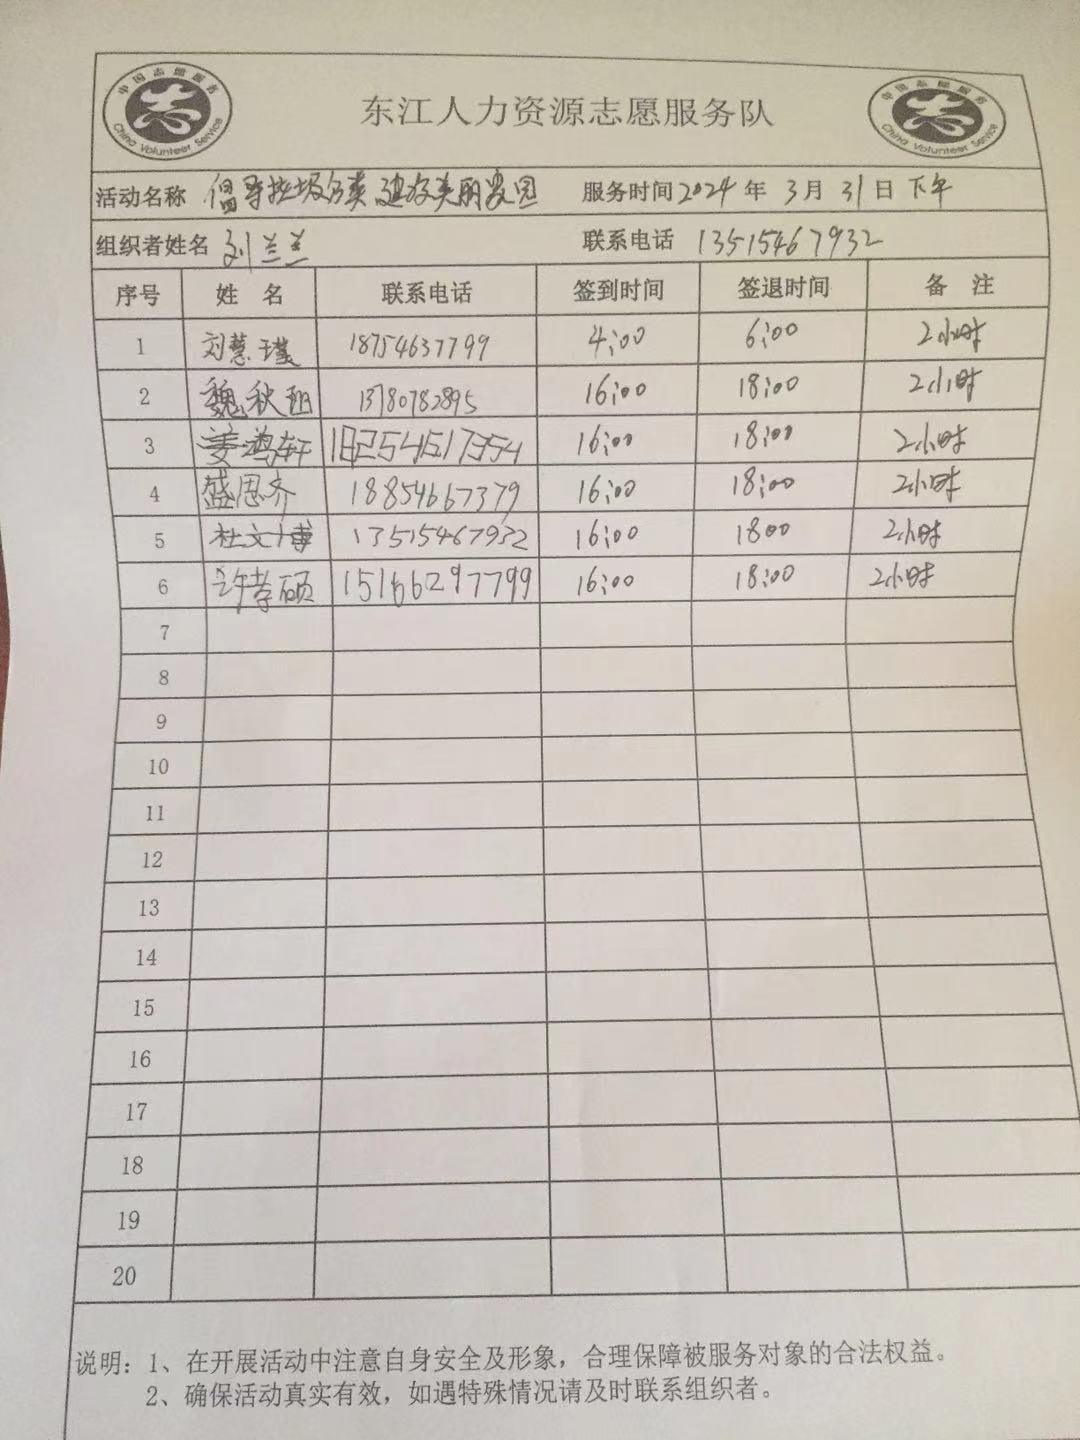 中国志愿服务
China Volunteer Service
东江人力资源志愿服务队
中国志愿服务
China Volunteer Service
活动名称 倡导垃圾分类 建设美丽家园 服务时间 2024 年 3 月 31 日 下午
组织者姓名 刘兰兰 联系电话 13515467932
序号 姓 名 联系电话 签到时间 签退时间 备 注
1 刘慧瑾 18754637799 4:00 6:00 2小时
2 魏秋 13780782895 16:00 18:00 2小时
3 姜鸿轩 18254617354 16:00 18:00 2小时
4 盛思齐 18854667379 16:00 18:00 2小时
5 杜文博 13515467932 16:00 1800 2小时
6 许孝硕 15166297799 16:00 18:00 2小时
7
8
9
10
11
12
13
14
15
16
17
18
19
20
说明：1、在开展活动中注意自身安全及形象，合理保障被服务对象的合法权益。
2、确保活动真实有效，如遇特殊情况请及时联系组织者。